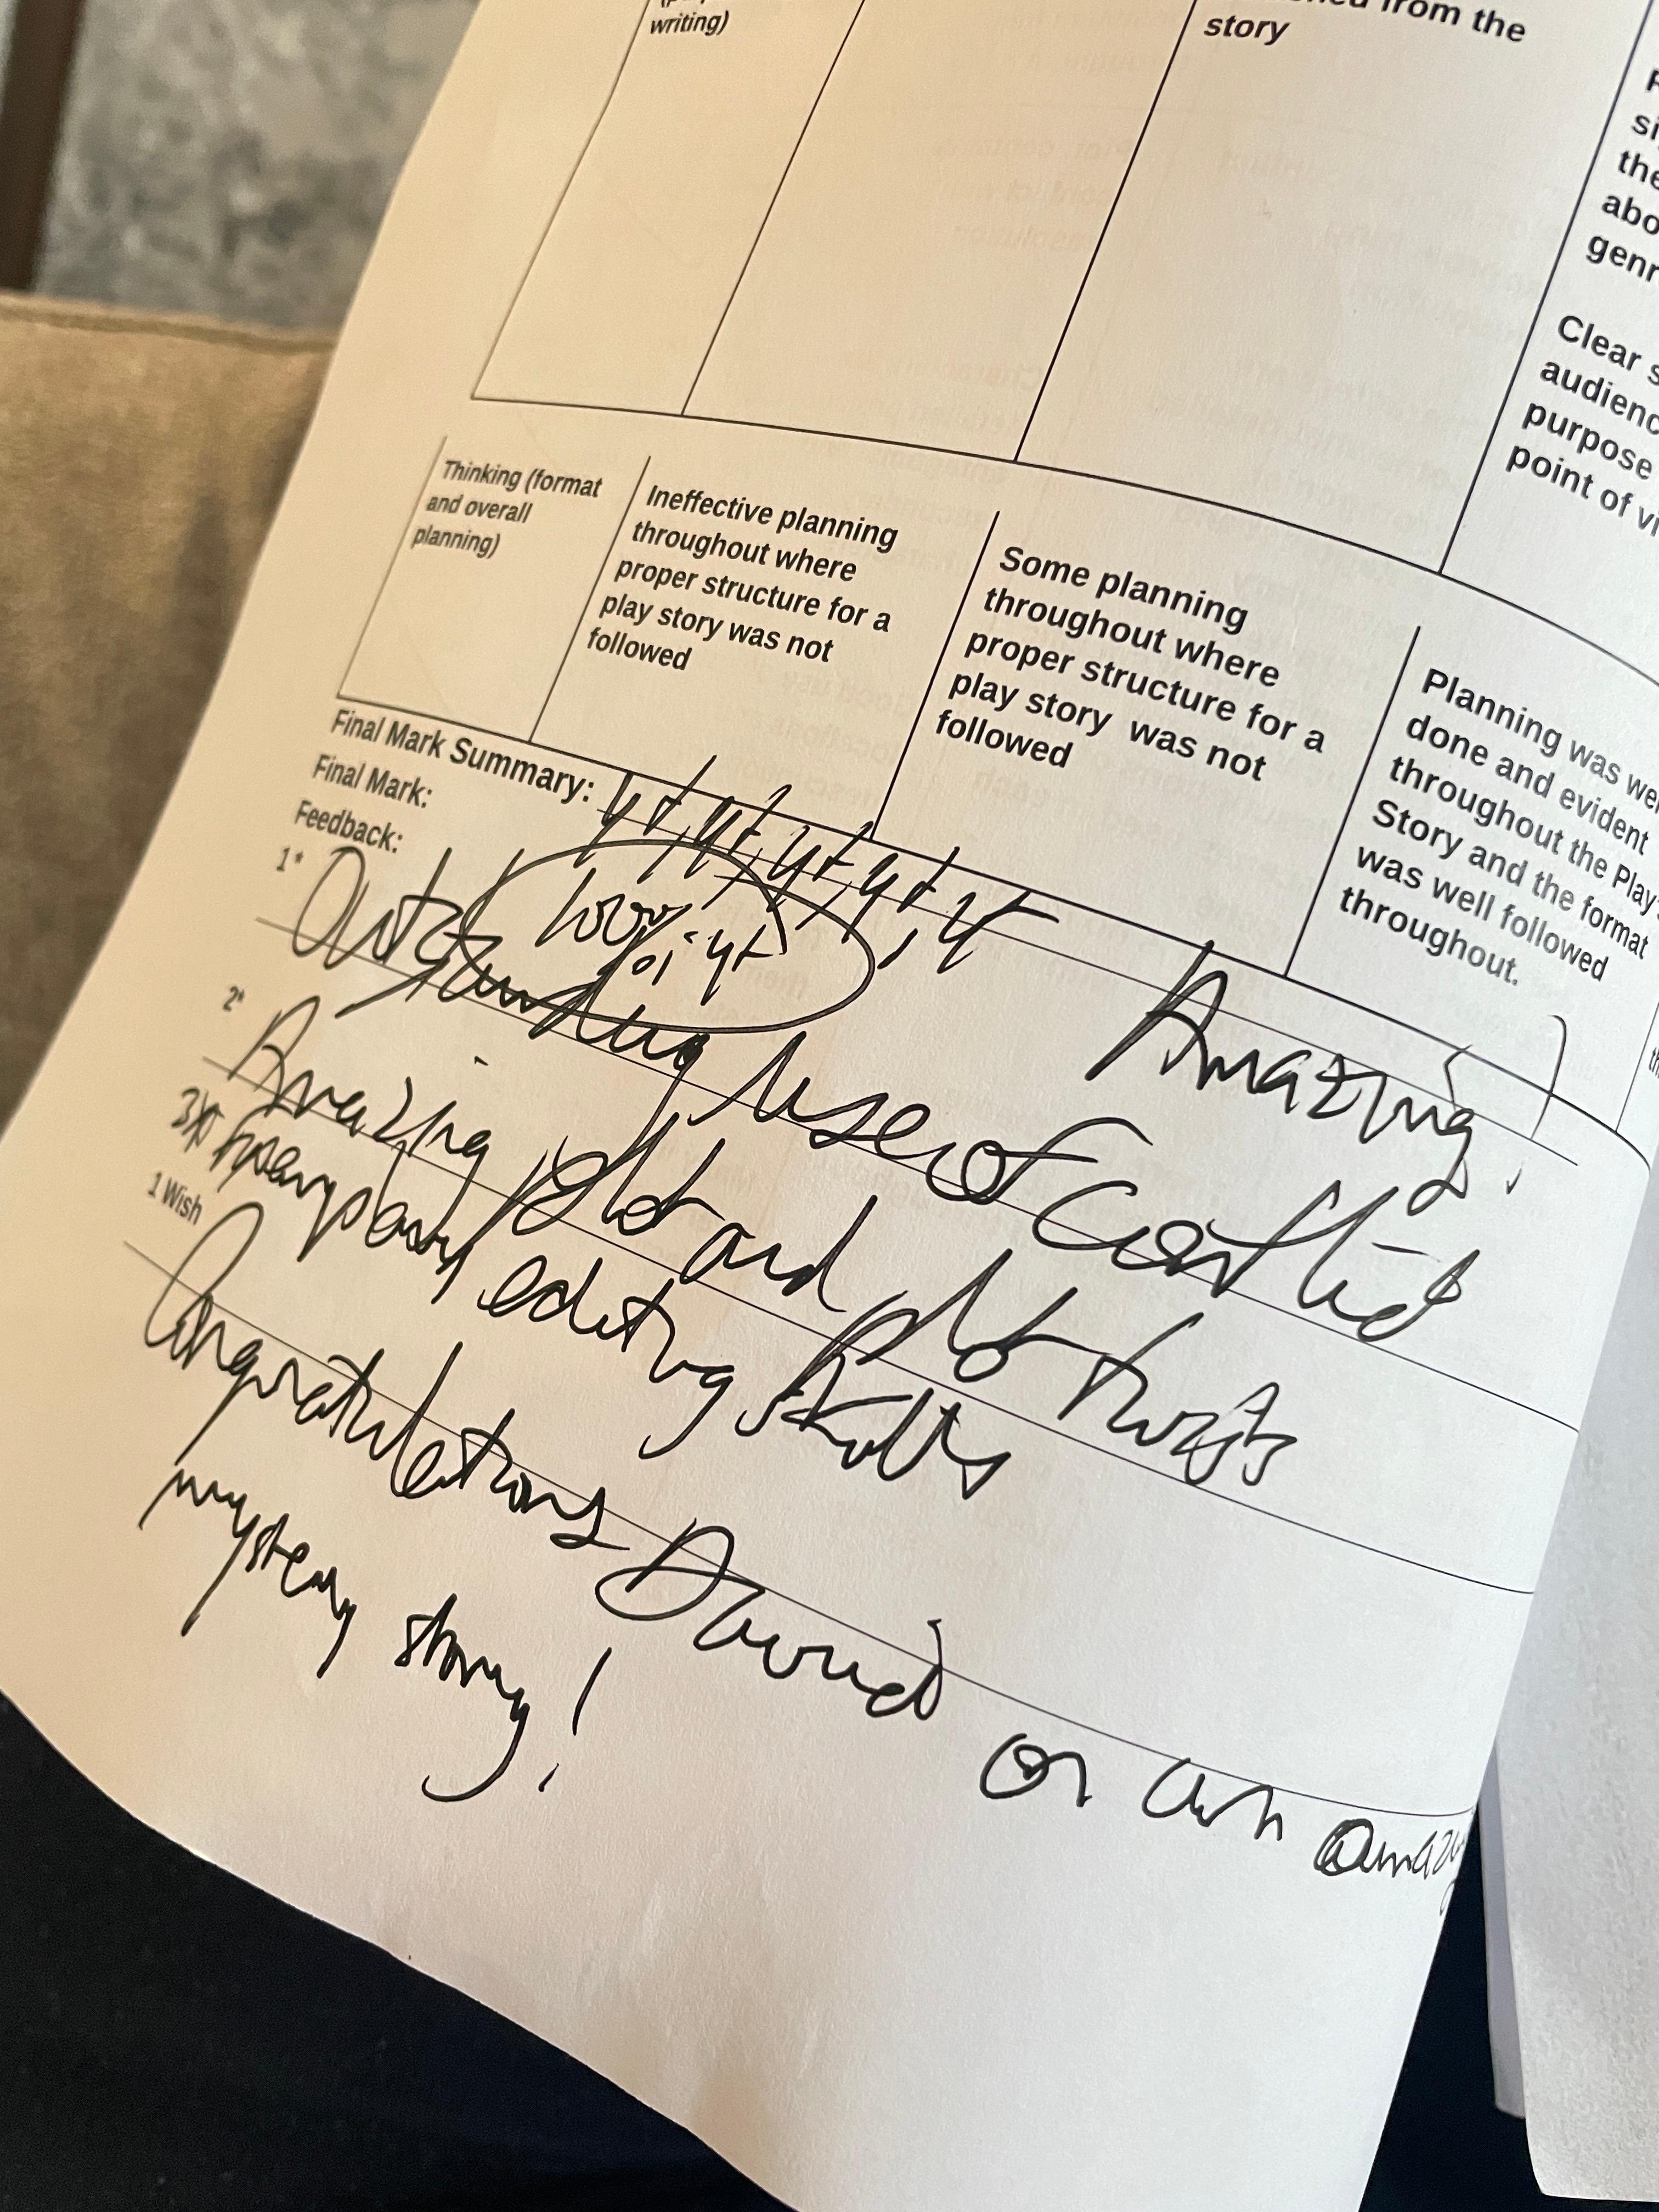 writing)
from the
story
Clear
point of
Thinking (format
and overall
planning)
Ineffective planning
throughout where
proper structure for a
play story was not
followed
Some planning
throughout where
proper structure for a
play story was not
followed
Planning was
done and evident
throughout the Play's
Story and the format
was well followed
throughout.
Final Mark Summary: 4+, 4+, 4+, 4+, 4+
Final Mark: 100% 4+
Amazing!
Feedback:
1* Outstanding use of conflict
2* Amazing plot and plot twists
3* Exemplary editing skills
1 Wish
Congratulations David on an
mystery story!